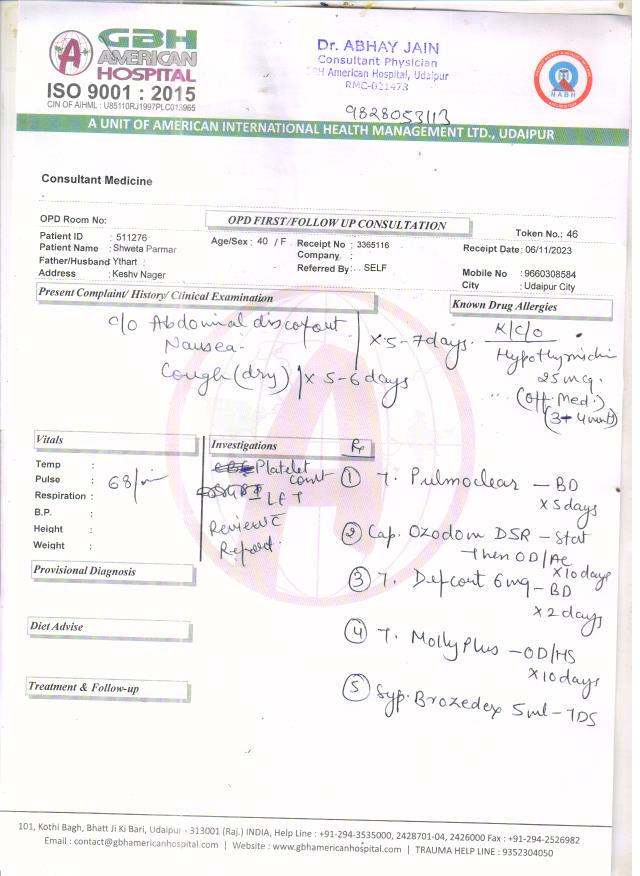 GBH
AMERICAN
HOSPITAL
ISO 9001 : 2015
CIN OF AIHML : U85110RJ1997PLC013965
Dr. ABHAY JAIN
Consultant Physician
GBH American Hospital, Udaipur
RMC-021473
9828053113
NABH
A UNIT OF AMERICAN INTERNATIONAL HEALTH MANAGEMENT LTD., UDAIPUR
Consultant Medicine
OPD Room No:
OPD FIRST/FOLLOW UP CONSULTATION
Token No.: 46
Patient ID : 511276
Age/Sex : 40 / F
Receipt No : 3365116
Receipt Date: 06/11/2023
Patient Name : Shweta Parmar
Company :
Father/Husband Ythart :
Referred By : SELF
Mobile No : 9660308584
Address : Keshv Nager
City : Udaipur City
Present Complaint/ History/ Clinical Examination
Known Drug Allergies
c/o Abdominal discofout
Nausea -
x 5-7 days.
Cough (dry) x 5-6 days
K/C/O
25 mcg.
(Off. Med.)
Vitals
Investigations
Rx
Temp :
Pulse : 68/min
Respiration :
B.P. :
Height :
Weight :
Platelet
count
LFT
Review c̄
Report.
Provisional Diagnosis
Diet Advise
Treatment & Follow-up
① T. Pulmoclear — BD
x 5 days
② Cap. Ozodom DSR — Stat
Then OD/AC
x 10 days
③ T. Defcort 6mg — BD
x 2 days
④ T. MollyPlus — OD/HS
x 10 days
⑤ Syp. Brozedex 5ml — TDS
101, Kothi Bagh, Bhatt Ji Ki Bari, Udaipur - 313001 (Raj.) INDIA, Help Line : +91-294-3535000, 2428701-04, 2426000 Fax : +91-294-2526982
Email : contact@gbhamericanhospital.com | Website : www.gbhamericanhospital.com | TRAUMA HELP LINE : 9352304050